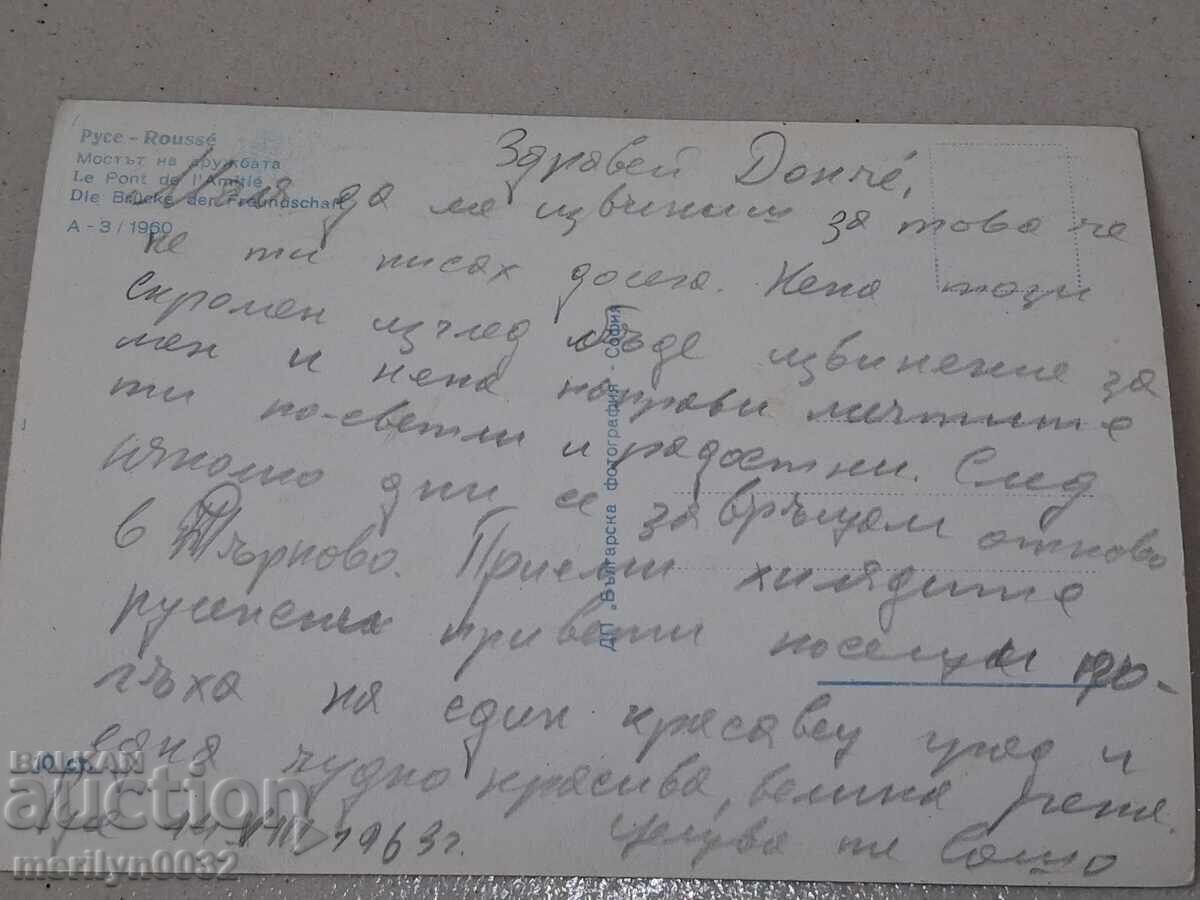 Русе - Roussé
Мостът на дружбата
Le Pont de l'Amitié
Die Brücke der Freundschaft
А - 3 / 1960
Здравей Донче,
Моля да ме извиниш за това че
не ти писах досега. Нека този
скромен изглед бъде извинение за
мен и нека направи мечтите
ти по-светли и радостни. След
няколко дни се завръщам отново
в Търново. Приеми хилядите
русенски привети
лъха на един красавец град и
една чудно красива, велика река.
11.VIII.1963г.
Целува те Сашо
ДП „Българска фотография" - София
10 ст.
BALKAN
auction
merilyn0032